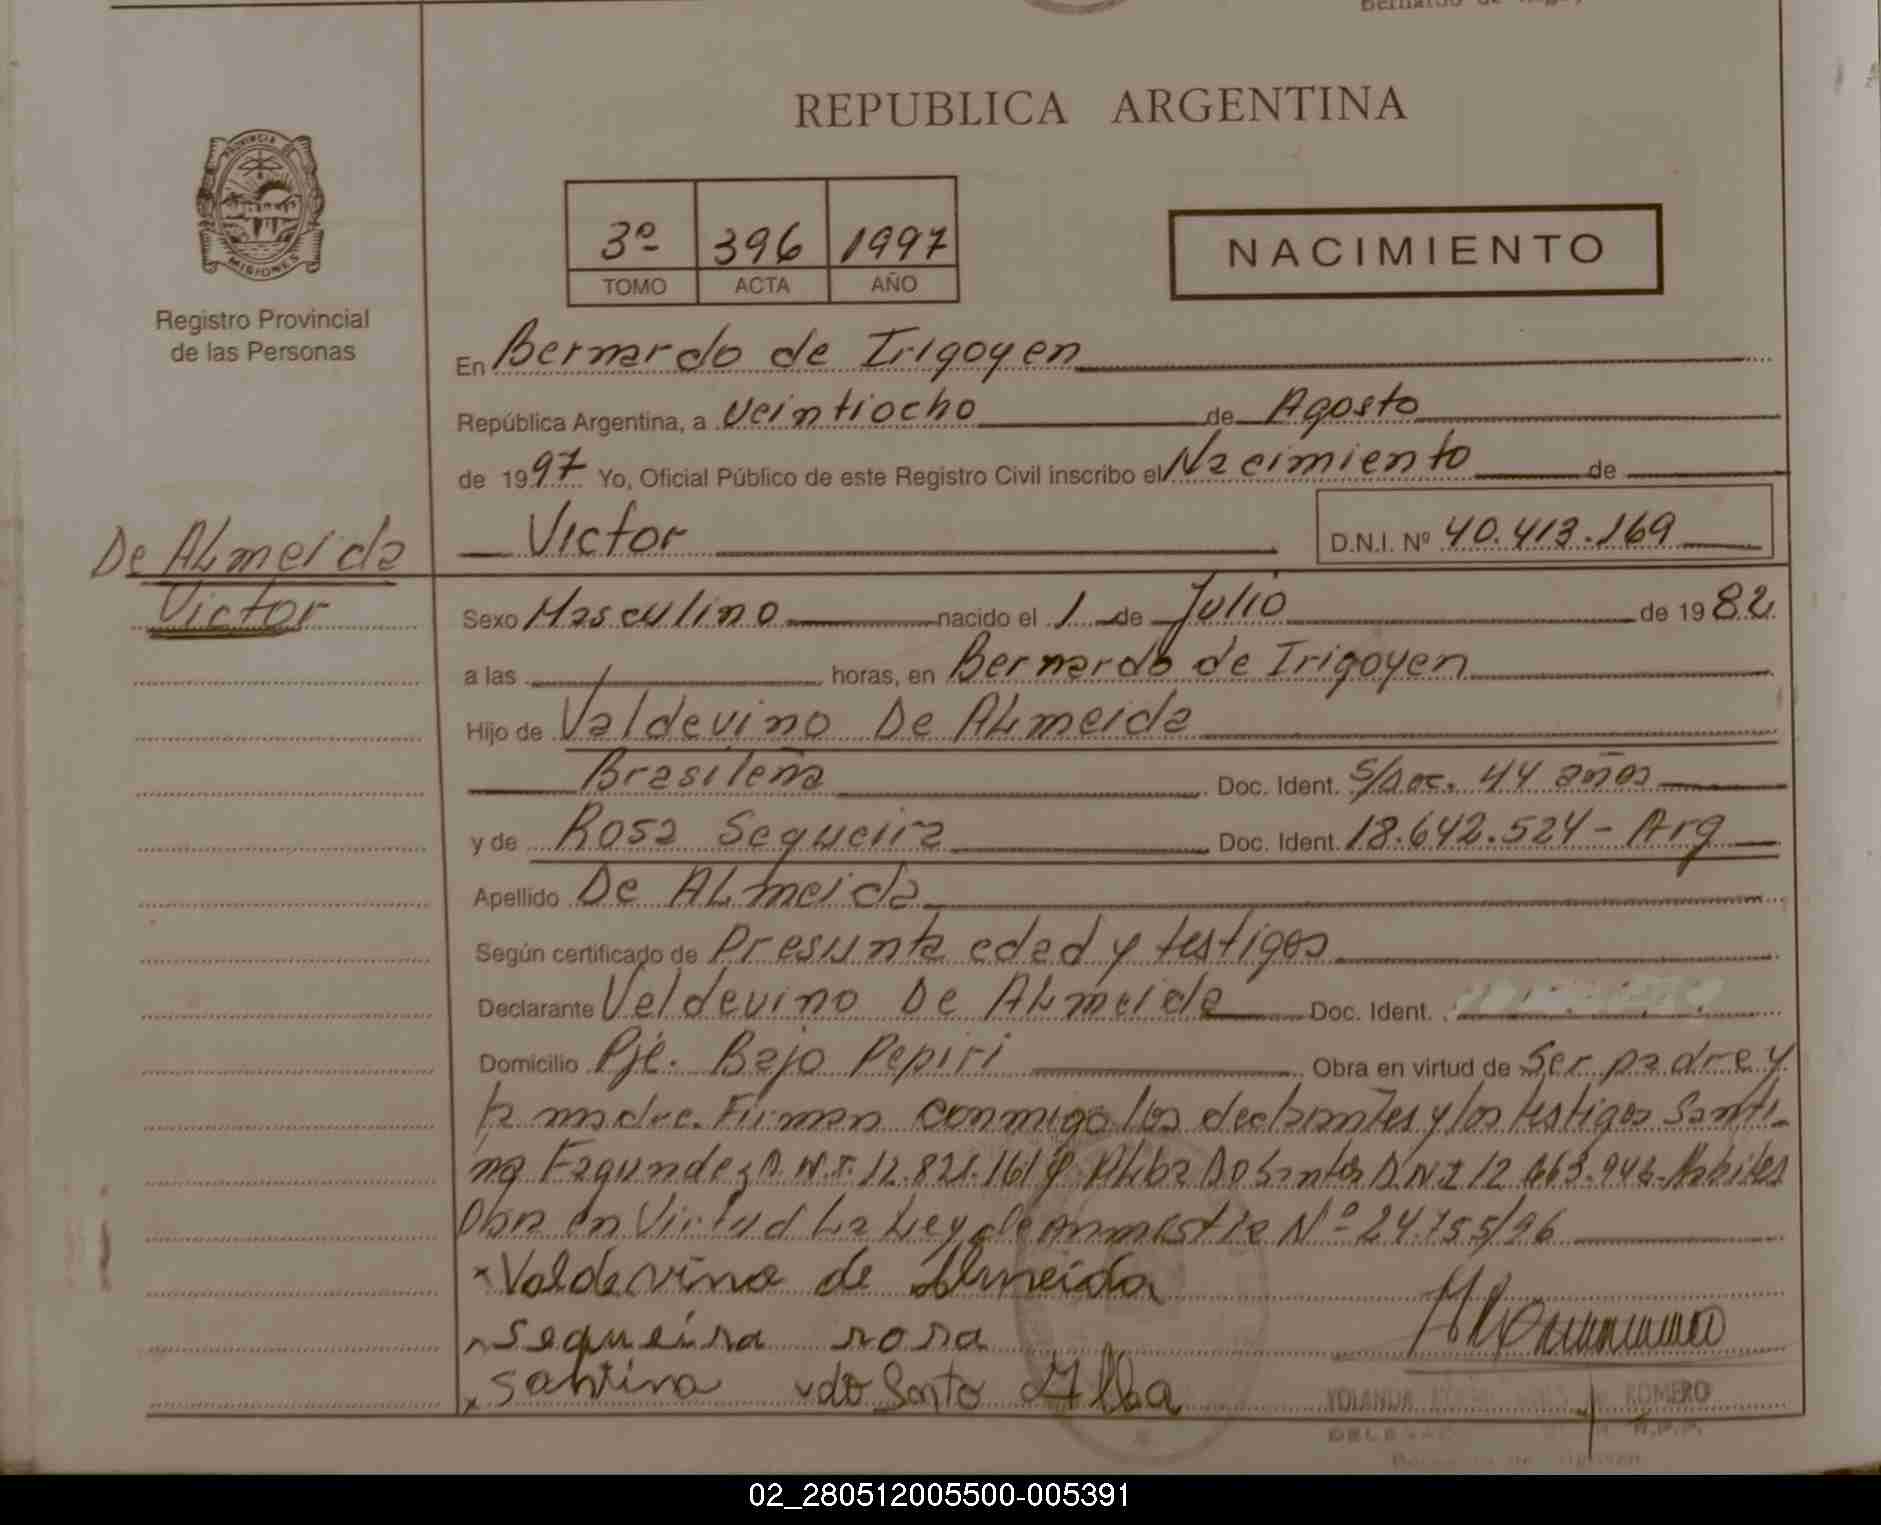 Bernardo de
REPUBLICA ARGENTINA
PROVINCIA DE
MISIONES
Registro Provincial
de las Personas
3º 396 1997
TOMO ACTA AÑO
NACIMIENTO
En Bernardo de Irigoyen
República Argentina, a Veintiocho de Agosto
de 1997 Yo, Oficial Público de este Registro Civil inscribo el Nacimiento de
Victor D.N.I. Nº 40.413.169
De ALmeida
Victor
Sexo Masculino nacido el 1 de Julio de 1982
a las / horas, en Bernardo de Irigoyen
Hijo de Valdevino De ALmeida
Brasileña Doc. Ident. S/Doc. 44 años
y de Rosa Sequeira Doc. Ident. 18.642.524 - Arg
Apellido De ALmeida
Según certificado de Presunta edad y testigos
Declarante Valdevino De ALmeida Doc. Ident.
Domicilio Pje. Bajo Pepiri Obra en virtud de Ser padre y
la madre. Firman conmigo los declarantes y los testigos Santi-
na Fagundez D.N.I. 12.821.161 y ALba Do Santos D.N.I 12.663.943 - Habiles
Obra en Virtud La Ley de Amnistia Nº 24.755/96
x Valdevino de Almeida
x Sequeira rosa
x Santina x do Santo Alba
YOLANDA ROMERO
R.P.P.
02_280512005500-005391